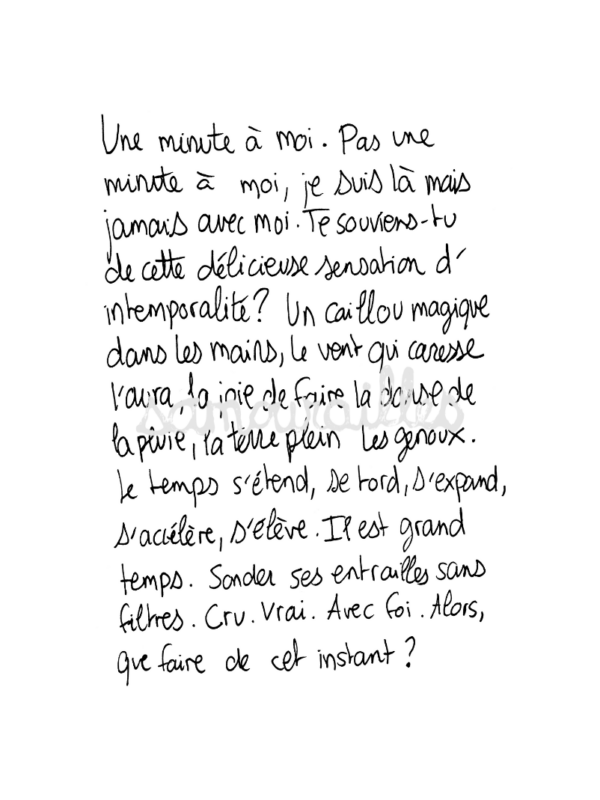 Une minute à moi. Pas une
minute à moi, je suis là mais
jamais avec moi. Te souviens-tu
de cette délicieuse sensation d'
intemporalité? Un caillou magique
dans les mains, le vent qui caresse
l'aura la joie de faire la danse de
la pluie, la terre plein les genoux.
Le temps s'étend, se tord, s'expand,
s'accélère, s'élève. Il est grand
temps. Sonder ses entrailles sans
filtres. Cru. Vrai. Avec foi. Alors,
que faire de cet instant ?